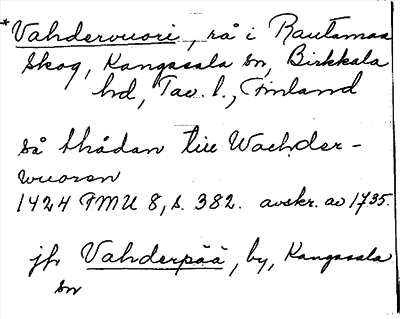 *Vahdervuori, rå i Rautamaa
skog, Kangasala sn, Birkkala
hd, Tav. l., Finland
så thådan till Waehder-
wuoren
1424 FMU 8, s. 382. avskr. av 1735.
jfr Vahderpää, by, Kangasala
sn